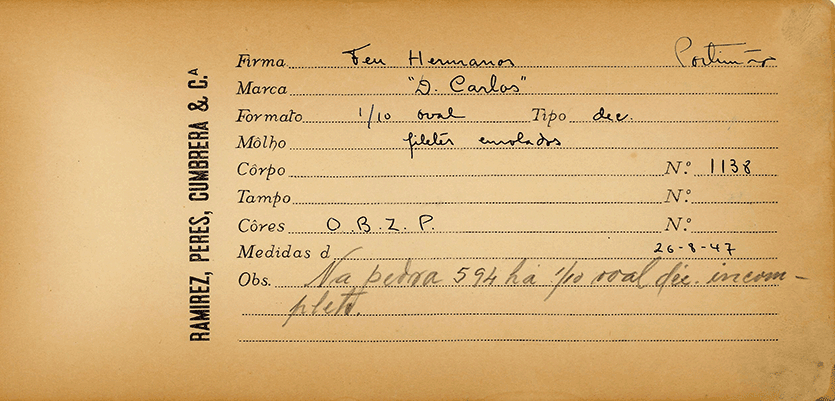 RAMIREZ, PERES, CUMBRERA & C.ᴬ
Firma Feu Hermanos Portimão
Marca "D. Carlos"
Formato 1/10 oval Tipo dec.
Môlho filetes enrolados
Côrpo N.º 1138
Tampo N.º
Côres O.B.Z.P. N.º
Medidas d 26-8-47
Obs. Na pedra 594 há 1/10 oval dec. incom-
pleto.